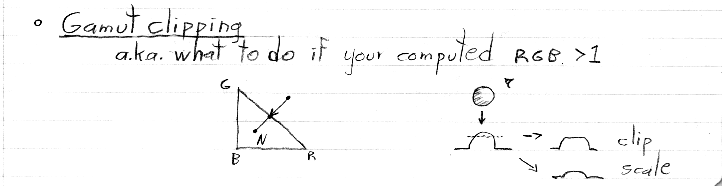 Gamut clipping
a.k.a. what to do if your computed RGB. >1
G
N
B R
clip
scale